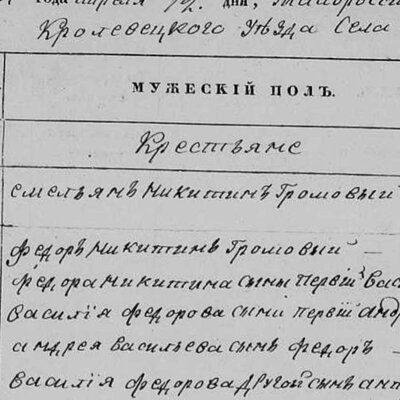 года апреля 12. дни, Малоросси
Кролевецкого Уѣзда Села
МУЖЕСКІЙ ПОЛЪ.
Крестьяне
Емельянъ Никитинъ Громовый
Федоръ Никитинъ Громовый —
Федора Никитина сыны первій Вас
Василія Федорова сыни первій Анд
Андрея Васильева сынъ Федоръ —
Василія Федорова другой сынъ Ант